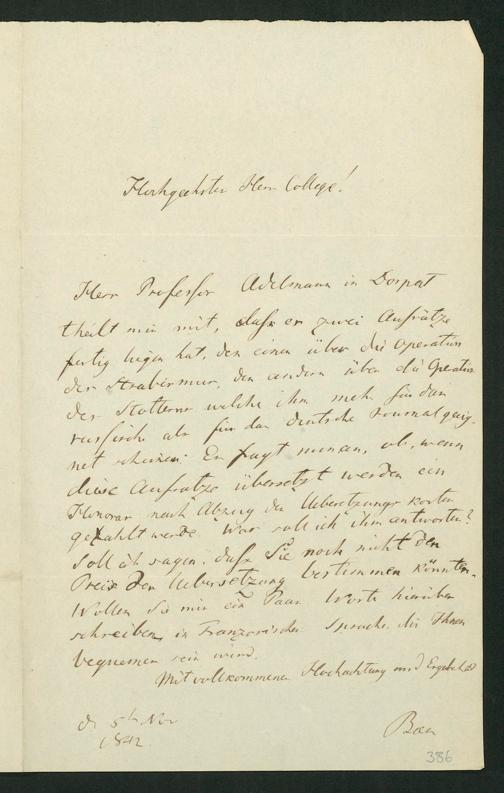 Hochgeehrter Herr College!
Herr Professor Adelmann in Dorpat
theilt mir mit, daß er zwei Aufsätze
fertig liegen hat, den einen über die Operation
des Strabismus, den andern über die Operation
des Stotterns welche ihm mehr für das
russische als für das deutsche Journal geeig-
net scheinen. Er fragt nun an, ob, wenn
diese Aufsätze übersetzt werden ein
Honorar nach Abzug der Uebersetzungs kosten
gezahlt werde. Was soll ich ihm antworten?
Soll ich sagen, daß Sie noch nicht den
Preis der Uebersetzung bestimmen könnten.
Wollen Sie mir ein Paar Worte hierüber
schreiben, in Französischer Sprache, die Ihnen
bequemer sein wird.
Mit vollkommener Hochachtung und Ergebenheit
d. 5ten Nov
1842.
Baer
386